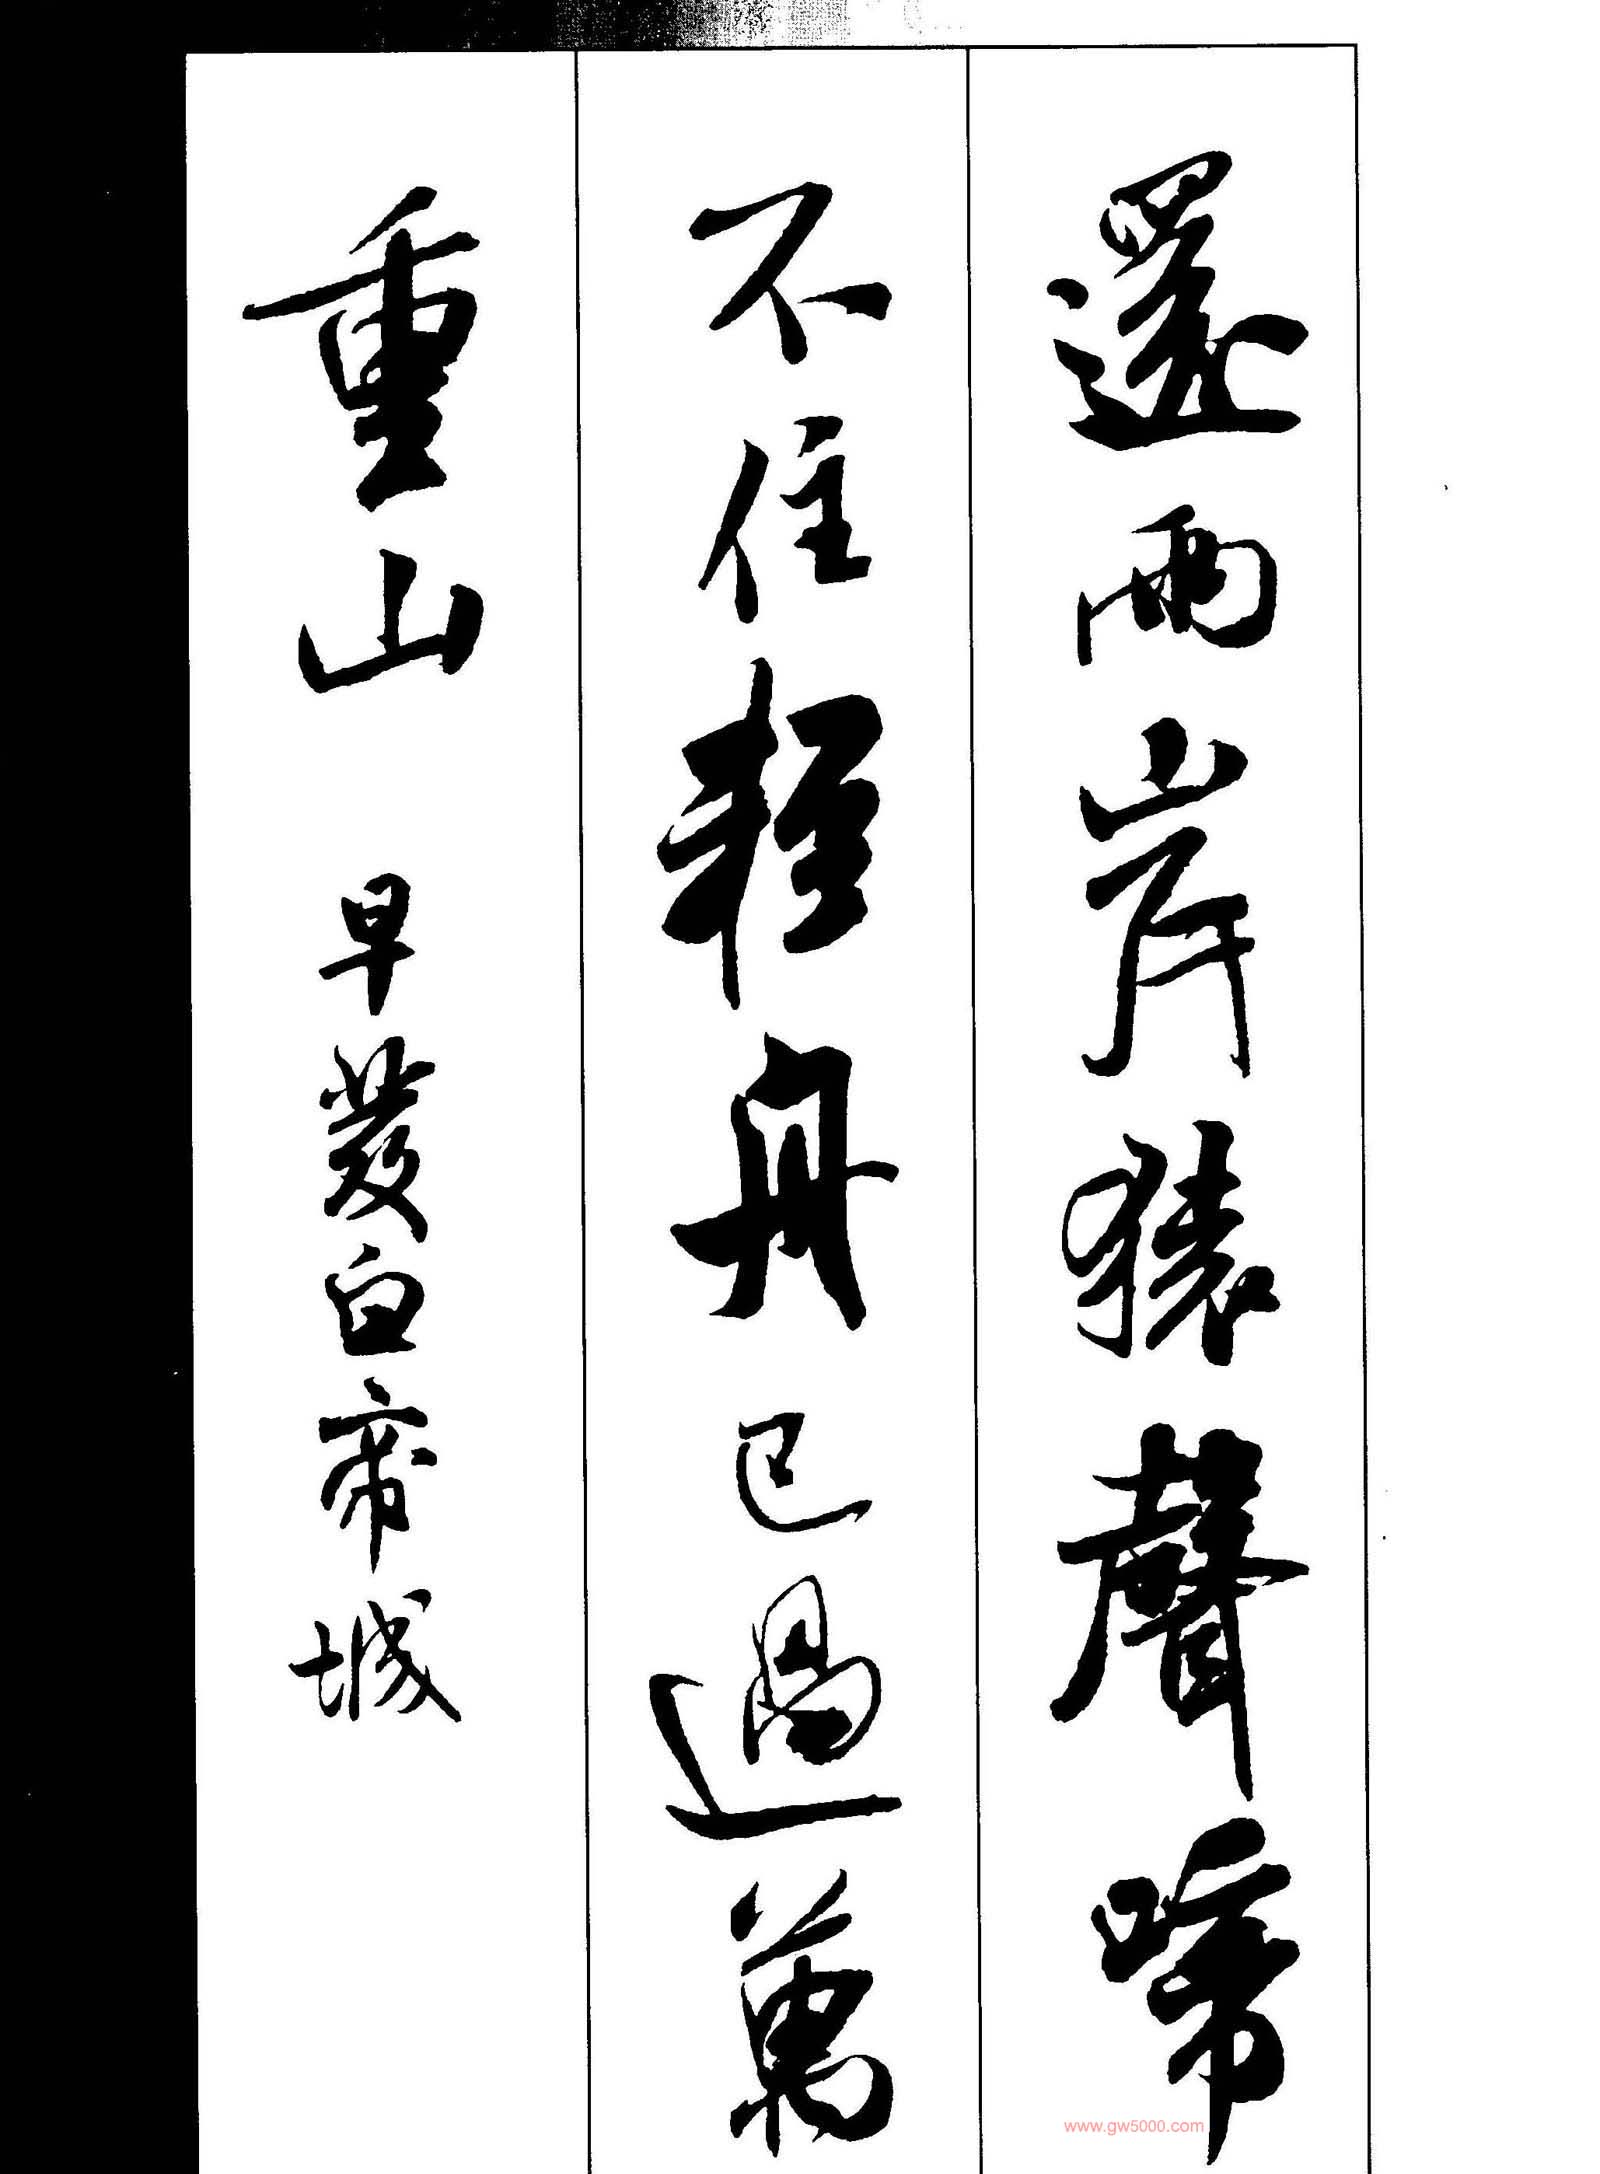 還兩岸猿聲啼
不住輕舟已過萬
重山 早發白帝城
www.gw5000.com